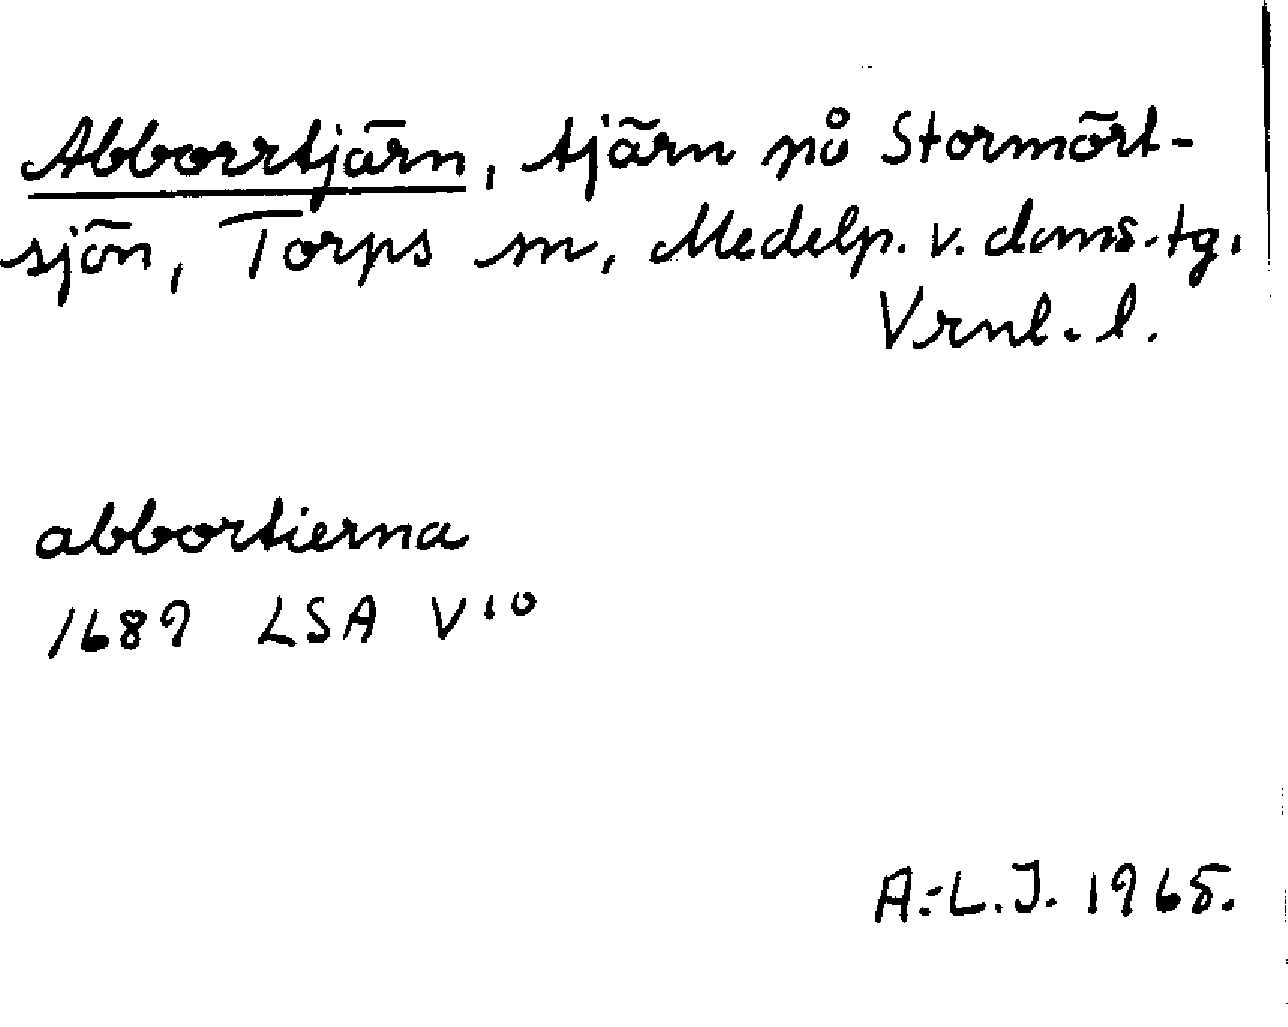 Abborrtjärn, tjärn på Stormört-
sjön, Torps sn, Medelp. v. doms.-tg.
Vrnl. l.
abbortierna
1689 LSA V 10
A.-L. J. 1965.